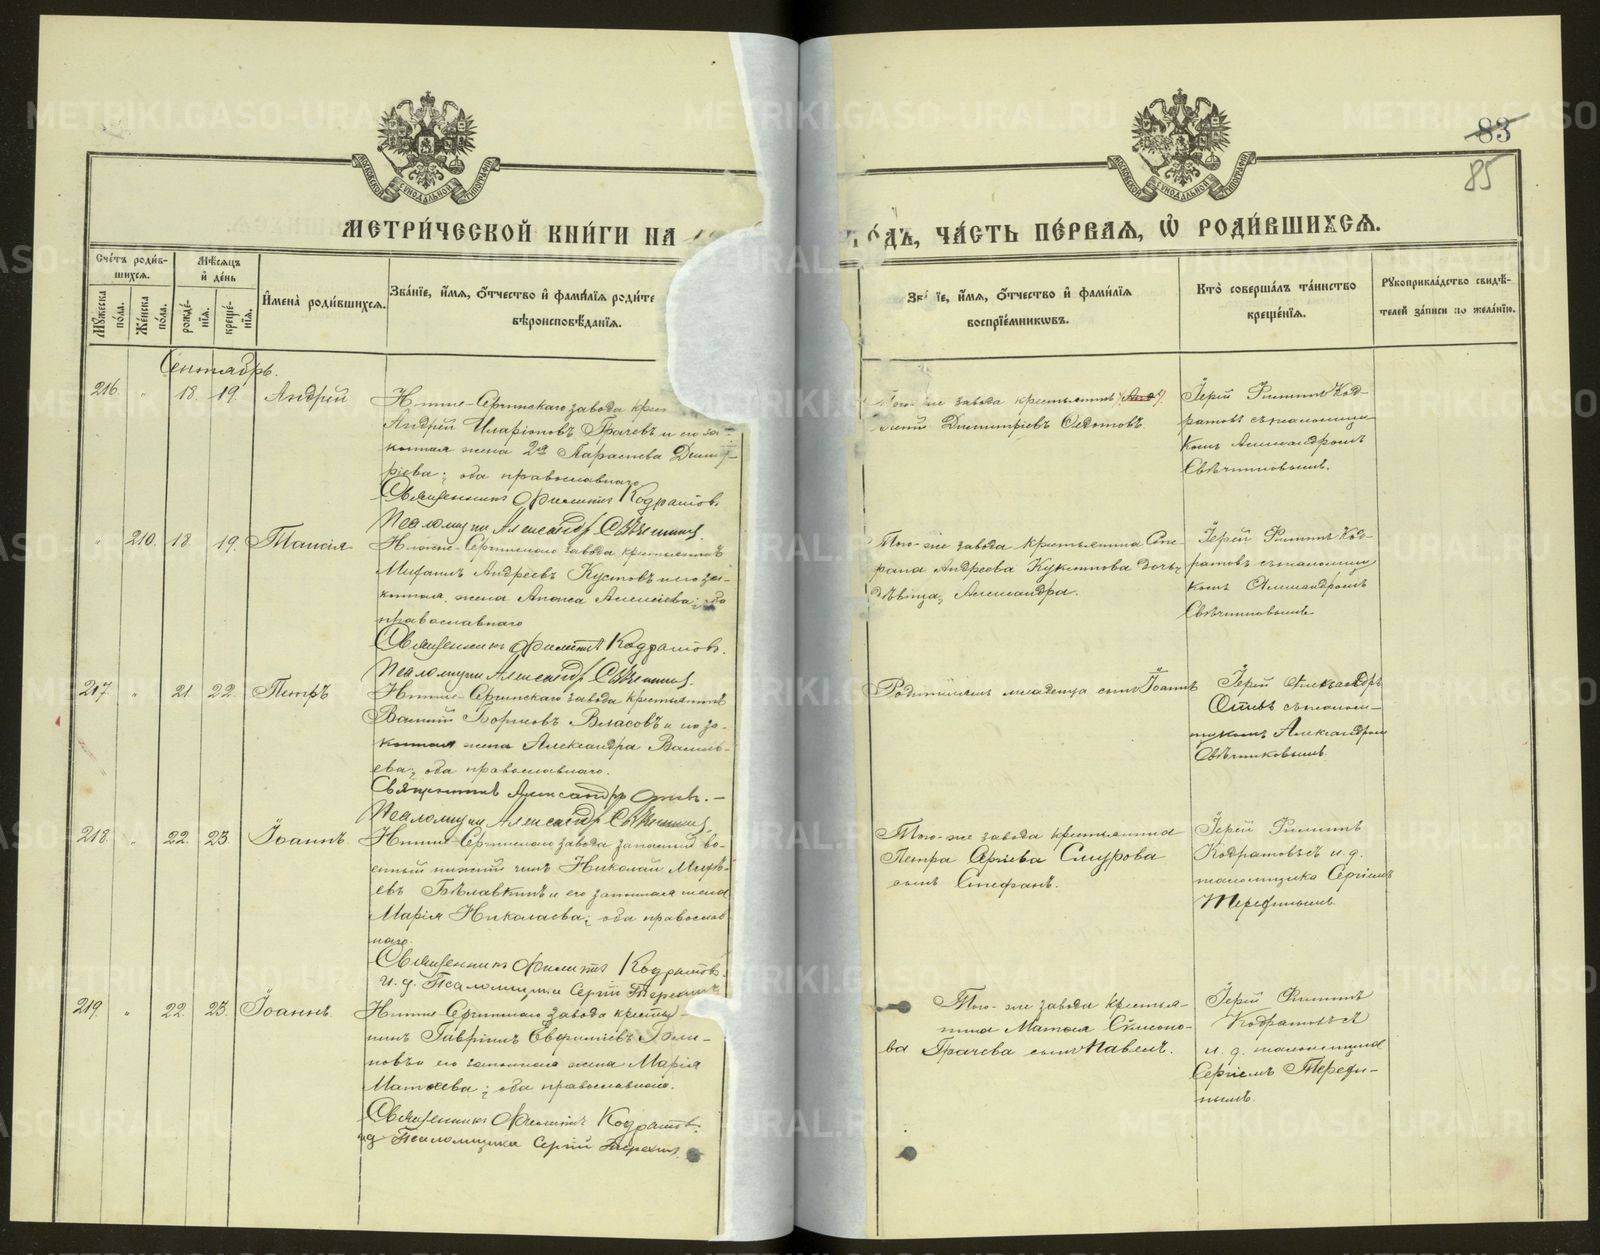 83
85
МЕТРИ́ЧЕСКОЙ КНИ́ГИ НА
ГО́ДЪ, ЧА́СТЬ ПЕ́РВАЯ, Ѡ҆ РОДИ́ВШИХСЯ.
Сче́тъ роди́в-
шихся.
Мѣ́сяцъ
и҆ де́нь
Мꙋ́жеска
по́ла.
Же́нска
по́ла.
рожде́-
нїя.
креще́-
нїя.
И҆мена̀ роди́вшихся.
Зва́нїе, и҆́мя, ѻ҆́тчество и҆ фами́лїя роди́те
вѣроисповѣ́данїя.
їе, и҆́мя, ѻ҆́тчество и҆ фами́лїя
воспрїе́мниковъ.
Кто̀ соверша́лъ та́инство
креще́нїя.
Рꙋкоприкла́дство свидѣ́-
телей за́писи по жела́нїю.
Сентябрь.
216. " 18. 19. Андрей
Нижне-Сергинскаго завода крес
Андрей Иларіоновъ Грачевъ и его за-
конная жена 2я Параскева Димит-
ріева; оба православнаго
Священникъ Филиппъ Кодратовъ.
Псаломщикъ Александръ Свѣчниковъ.
Того-же завода крестьянинъ
Димитріевъ Федотовъ.
Іерей Филиппъ Код-
ратовъ съ псаломщи-
комъ Александромъ
Свѣчниковымъ.
" 210. 18. 19. Таисія
Нижне-Сергинскаго завода крестьянинъ
Михаилъ Андреевъ Кустовъ и его за-
конная жена Анна Алексіева; оба
православнаго
Священникъ Филиппъ Кодратовъ.
Псаломщикъ Александръ Свѣчниковъ.
Того-же завода крестьянина Сте-
фана Андреева дочь
дѣвица Александра.
Іерей Филиппъ Код-
ратовъ съ псаломщи-
комъ Александромъ
Свѣчниковымъ
217. " 21. 22. Петръ
Нижне-Сергинскаго завода крестьянинъ
Василій Борисовъ Власовъ и его за-
конная жена Александра Василь-
ева; оба православнаго.
Священникъ Александръ
Псаломщикъ Александръ Свѣчниковъ.
Родителямъ младенца сынъ Іоаннъ
Іерей Александръ
съ псалом-
щикомъ Александромъ
Свѣчниковымъ.
218. " 22. 23. Іоаннъ
Нижне-Сергинскаго завода запасный во-
енный нижній чинъ Николай Матѳѣ-
евъ Бѣлавкинъ и его законная жена
Марія Николаева; оба православ
наго.
Священникъ Филиппъ Кодратовъ.
И. д. Псаломщика Сергій
Того-же завода крестьянина
Петра Сергіева Смурова
сынъ Стефанъ.
Іерей Филиппъ
Кодратовъ съ и. д.
псаломщика Сергіемъ
219. " 22. 23. Іоаннъ.
Нижне-Сергинскаго завода крестья-
нинъ Гавріилъ Евфиміевъ
новъ и его законная жена Марія
Матѳеева; оба православнаго.
Священникъ Филиппъ Кодратовъ.
ид Псаломщика Сергій
Того-же завода крестья-
нина Матѳея Симеоно-
ва Грачева сынъ Павелъ.
Іерей Филиппъ
Кодратовъ съ
и. д. псаломщика
Сергіемъ
METRIKI.GASO-URAL.RU